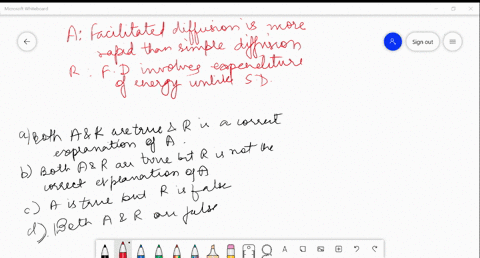 Microsoft Whiteboard
Sign out
A: Facilitated diffusion is more
rapid than simple diffusion
R: F.D involves expenditure
of energy unlike S.D.
a) Both A & R are true & R is a correct
explanation of A.
b) Both A & R are true but R is not the
correct explanation of A
c) A is true but R is false
d) Both A & R are false